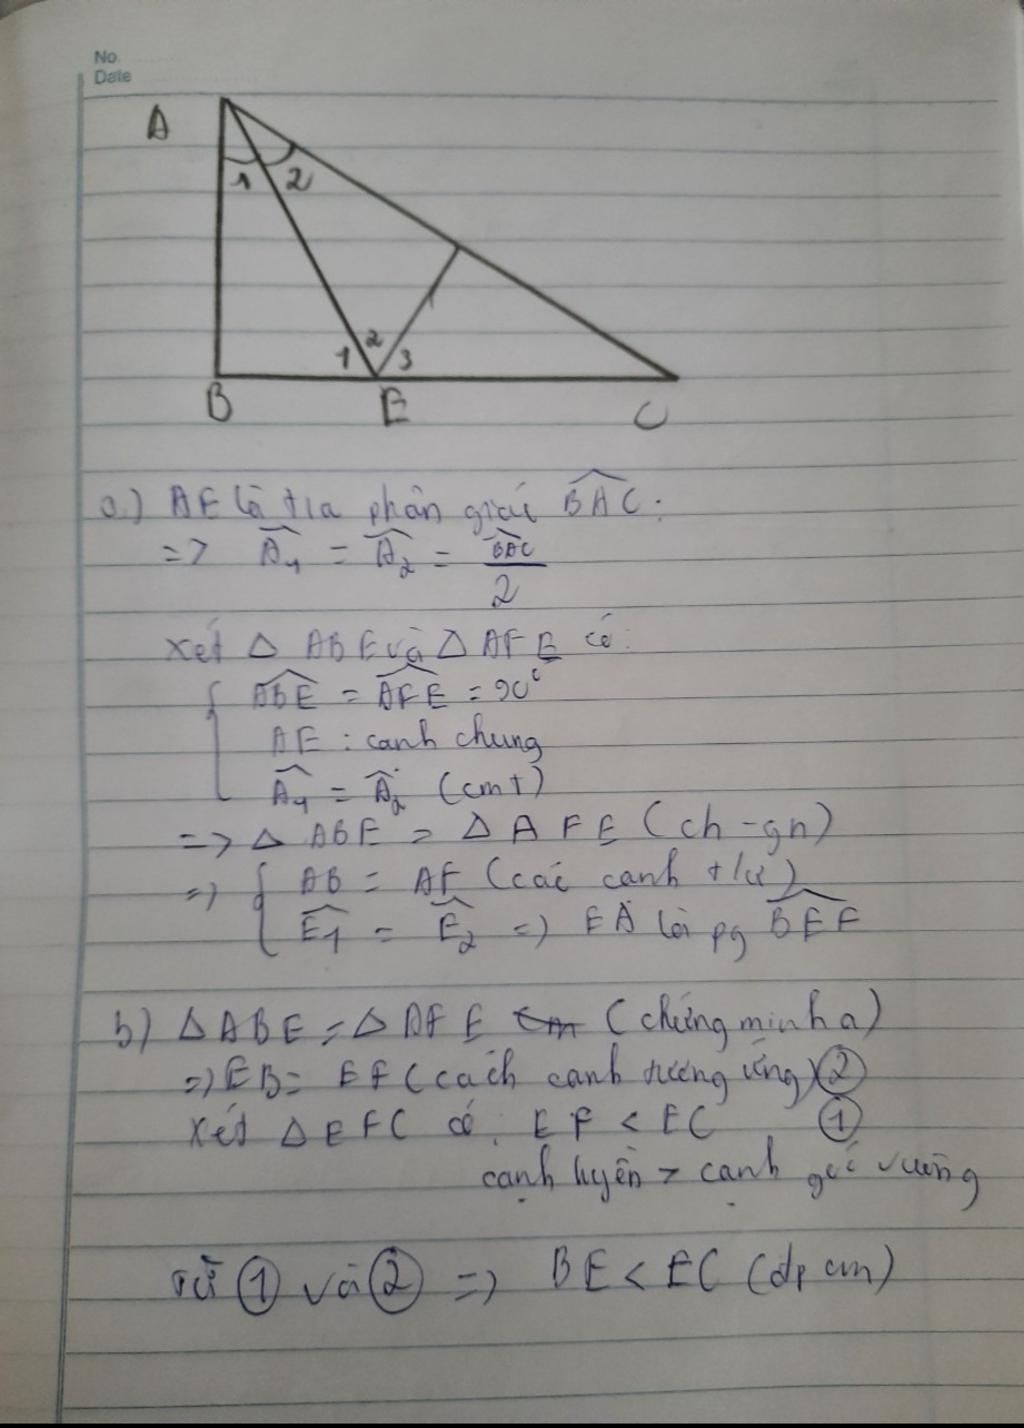 No.
Date
A
1 2
1 2 3
B E C
a.) AE là tia phân giác BAC:
=> A₁ = A₂ = BAC/2
Xét Δ ABE và Δ AFE có:
ABE = AFE = 90°
AE : canh chung
A₁ = A₂ (cmt)
=> Δ ABE = Δ AFE (ch-gn)
=> AB = AF (các canh t/ư)
E₁ = E₂ => EA là pg BEF
b) ΔABE = Δ AFE (chứng minh a)
=> EB = EF (cách canh tương ứng) ②
Xét ΔEFC có: EF < EC ①
cạnh huyền > cạnh góc vuông
từ ① và ② => BE < EC (đpcm)